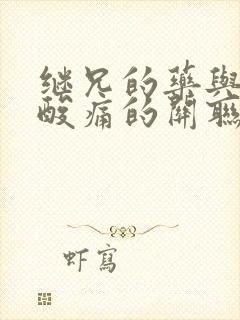 继兄的藥與
酸痛的關聯
虾寫